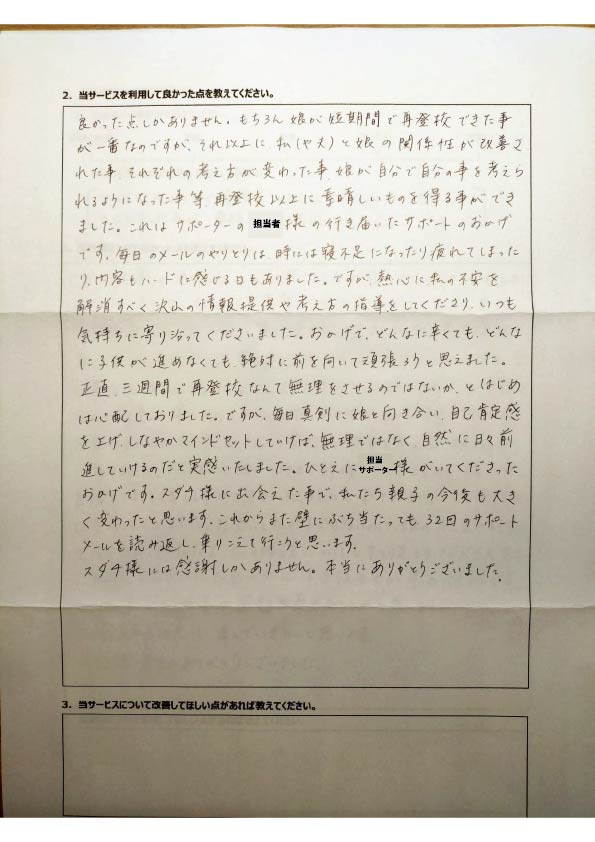 2. 当サービスを利用して良かった点を教えてください。
良かった点しかありません。もちろん娘が短期間で再登校できた事
が一番なのですが、それ以上に、私(や夫)と娘の関係性が改善さ
れた事、それぞれの考え方が変わった事、娘が自分で自分の事を考えら
れるようになった事等、再登校以上に素晴しいものを得る事ができ
ました。これはサポーターの 担当者 様の行き届いたサポートのおかげ
です。毎日のメールのやりとりは、時には寝不足になったり疲れてしまった
り、内容もハードに感じる日もありました。ですが、熱心に私の不安を
解消すべく沢山の情報提供や考え方の指導をしてくださり、いつも
気持ちに寄り沿ってくださいました。おかげで、どんなに辛くても、どんな
に子供が進めなくても、絶対に前を向いて頑張ろうと思えました。
正直、三週間で再登校なんて無理をさせるのではないか、とはじめ
は心配しておりました。ですが、毎日真剣に娘と向き合い、自己肯定感
を上げ、しなやかマインドセットしていけば、無理ではなく、自然に日々前
進していけるのだと実感いたしました。ひとえに 担当サポーター 様がいてくださった
おかげです。スダチ様に出会えた事で、私たち親子の今後も大き
く変わったと思います。これからまた壁にぶち当たっても、32日のサポート
メールを読み返し、乗りこえて行こうと思います。
スダチ様には感謝しかありません。本当にありがとうございました。
3. 当サービスについて改善してほしい点があれば教えてください。